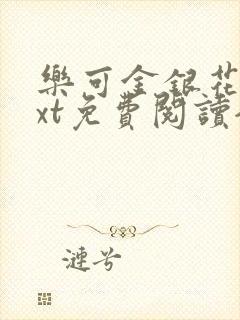 樂可金銀花
xt免費閱讀
漣兮